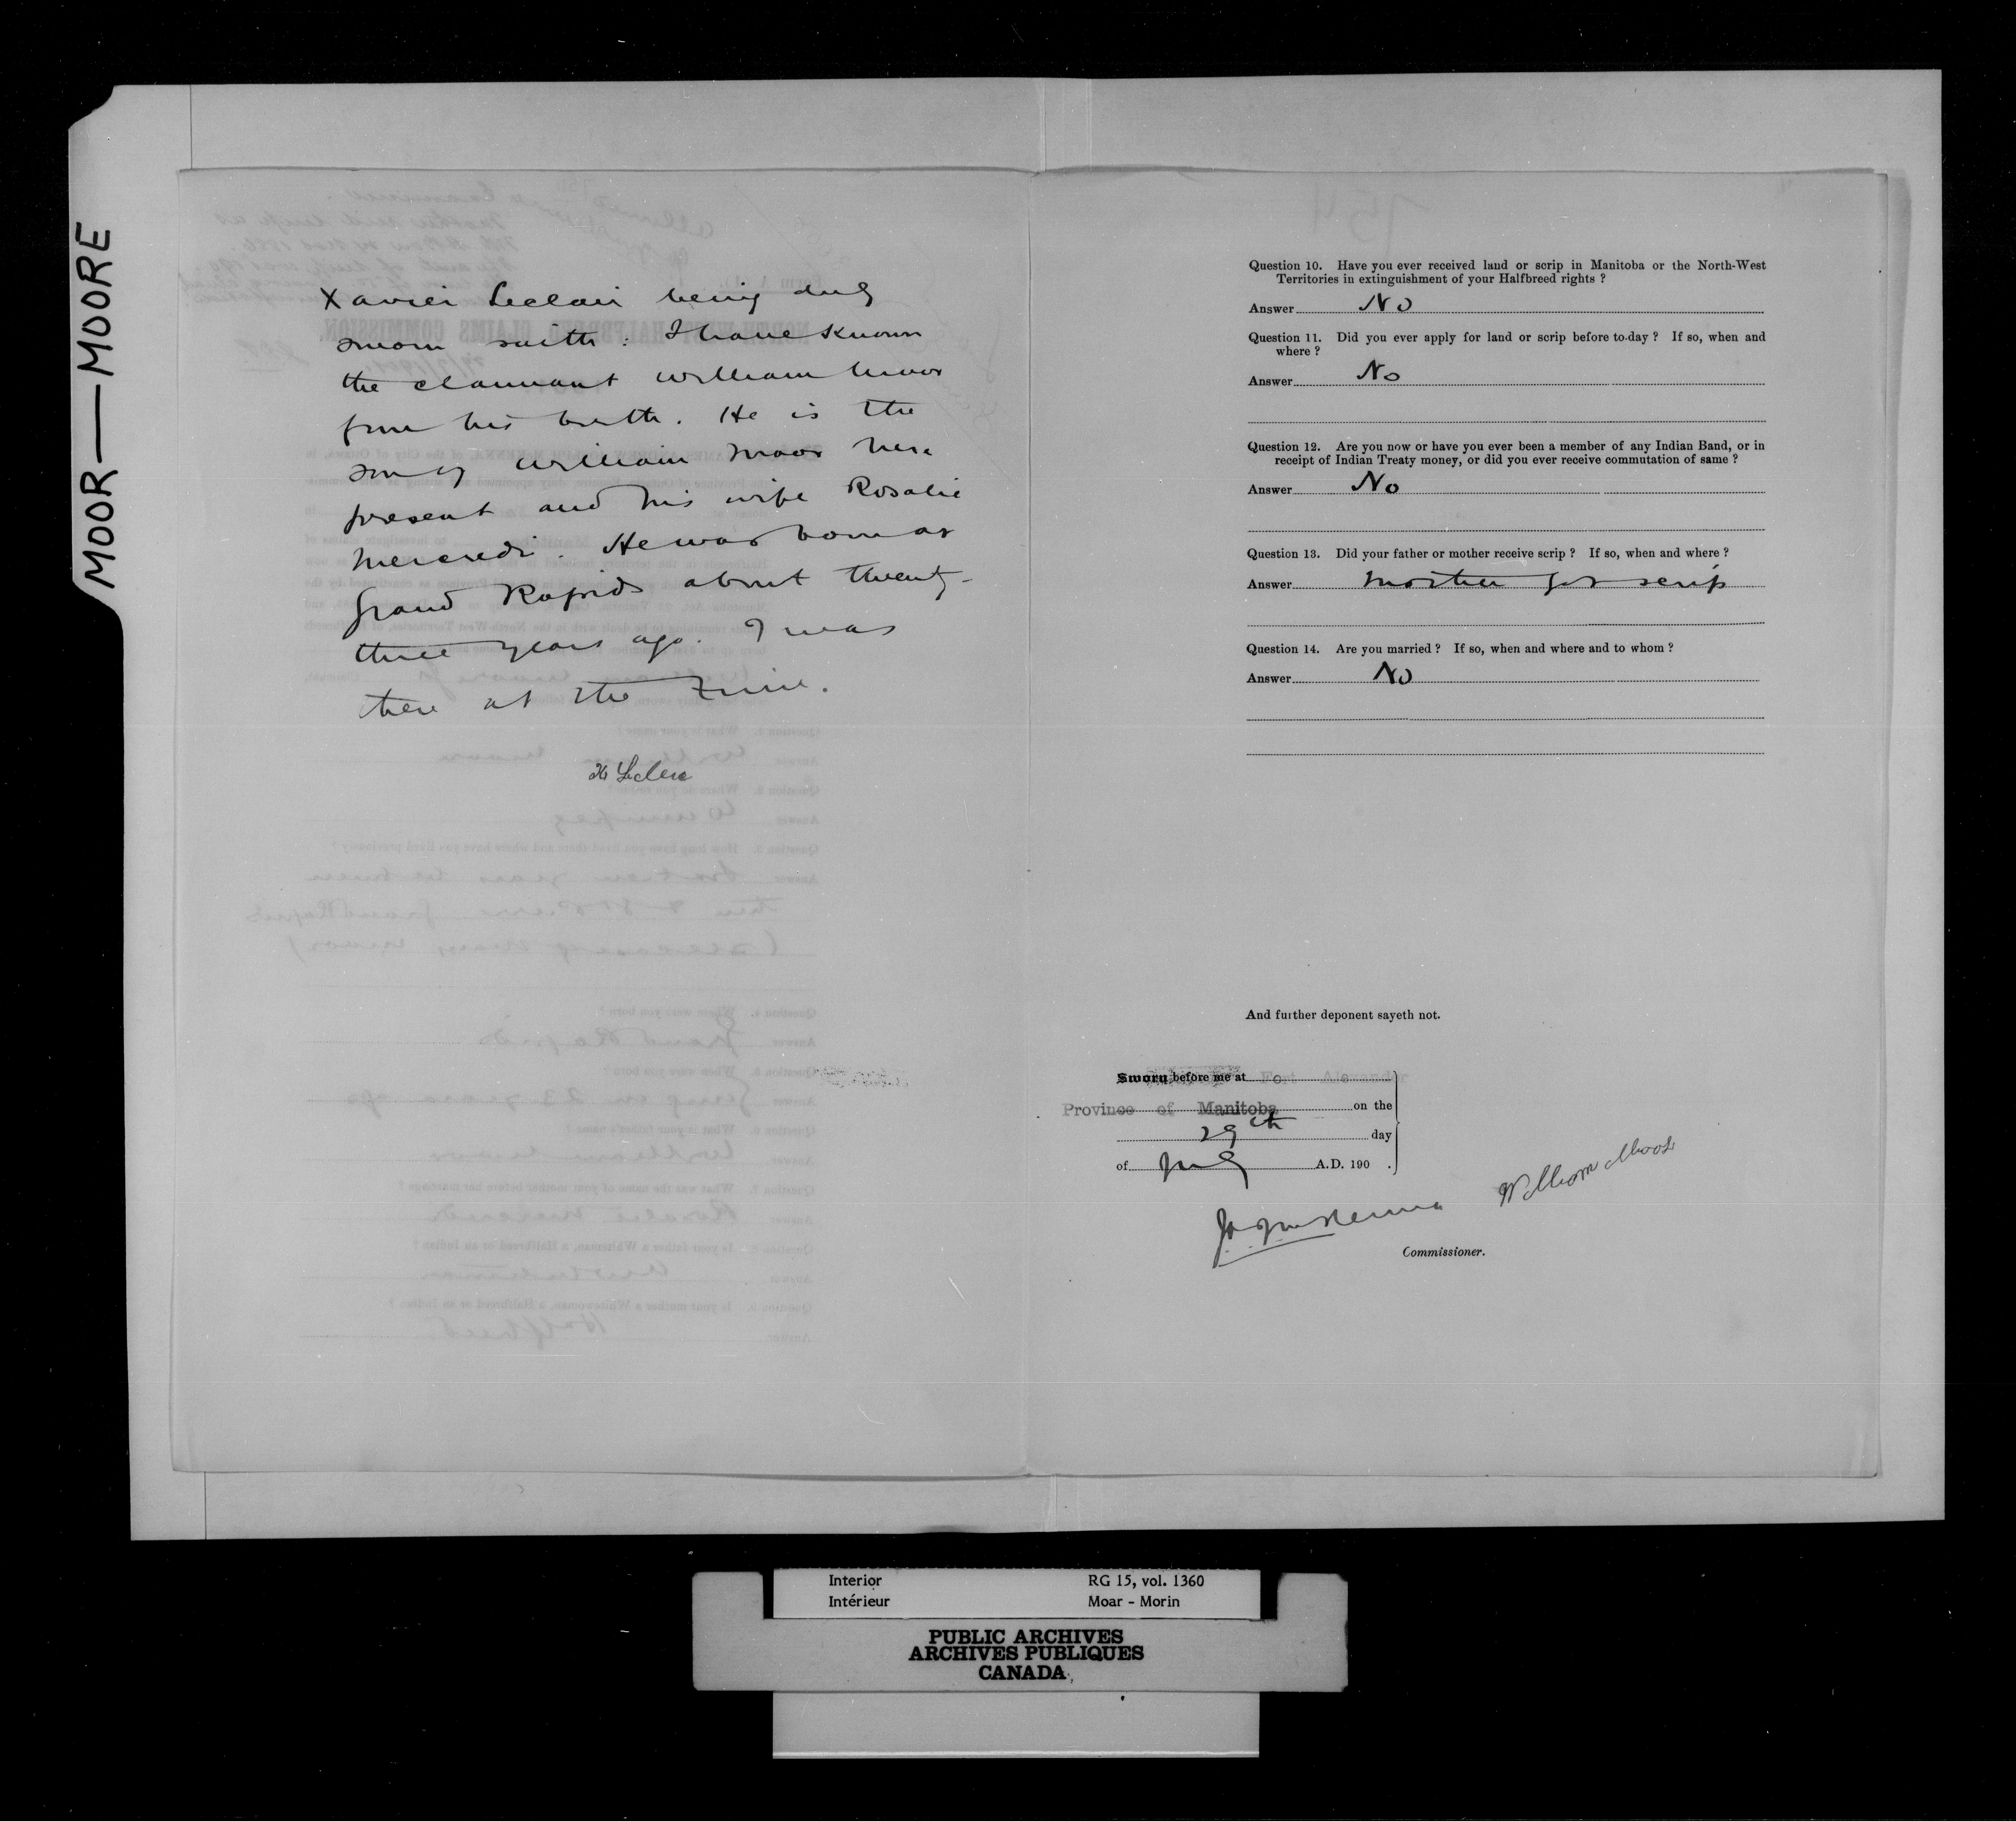 MOOR—MOORE
Xavier Leclair being duly
sworn saith: I have known
the claimant William Moor
from his birth. He is the
son of William Moor here
present and his wife Rosalie
Mercredi. He was born at
Grand Rapids about twenty-
three years ago. I was
there at the time.
X Leclere
Question 10. Have you ever received land or scrip in Manitoba or the North-West
Territories in extinguishment of your Halfbreed rights ?
Answer No
Question 11. Did you ever apply for land or scrip before to-day ? If so, when and
where ?
Answer No
Question 12. Are you now or have you ever been a member of any Indian Band, or in
receipt of Indian Treaty money, or did you ever receive commutation of same ?
Answer No
Question 13. Did your father or mother receive scrip ? If so, when and where ?
Answer Mother got scrip
Question 14. Are you married ? If so, when and where and to whom ?
Answer No
And further deponent sayeth not.
Sworn before me at Fort Alexander
Province of Manitoba on the
29th day
of July A.D. 190 .
William Moor
J. A. J. McKenna
Commissioner.
Interior RG 15, vol. 1360
Intérieur Moar - Morin
PUBLIC ARCHIVES
ARCHIVES PUBLIQUES
CANADA